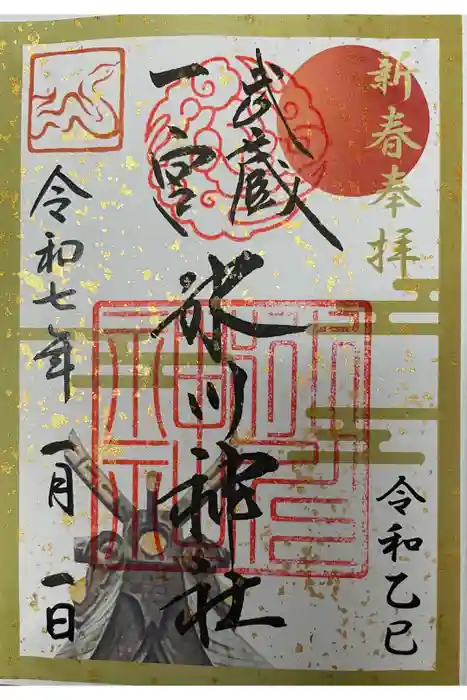 新春奉拝
令和乙巳
武蔵
一宮
氷川神社
令和七年
一月
一日